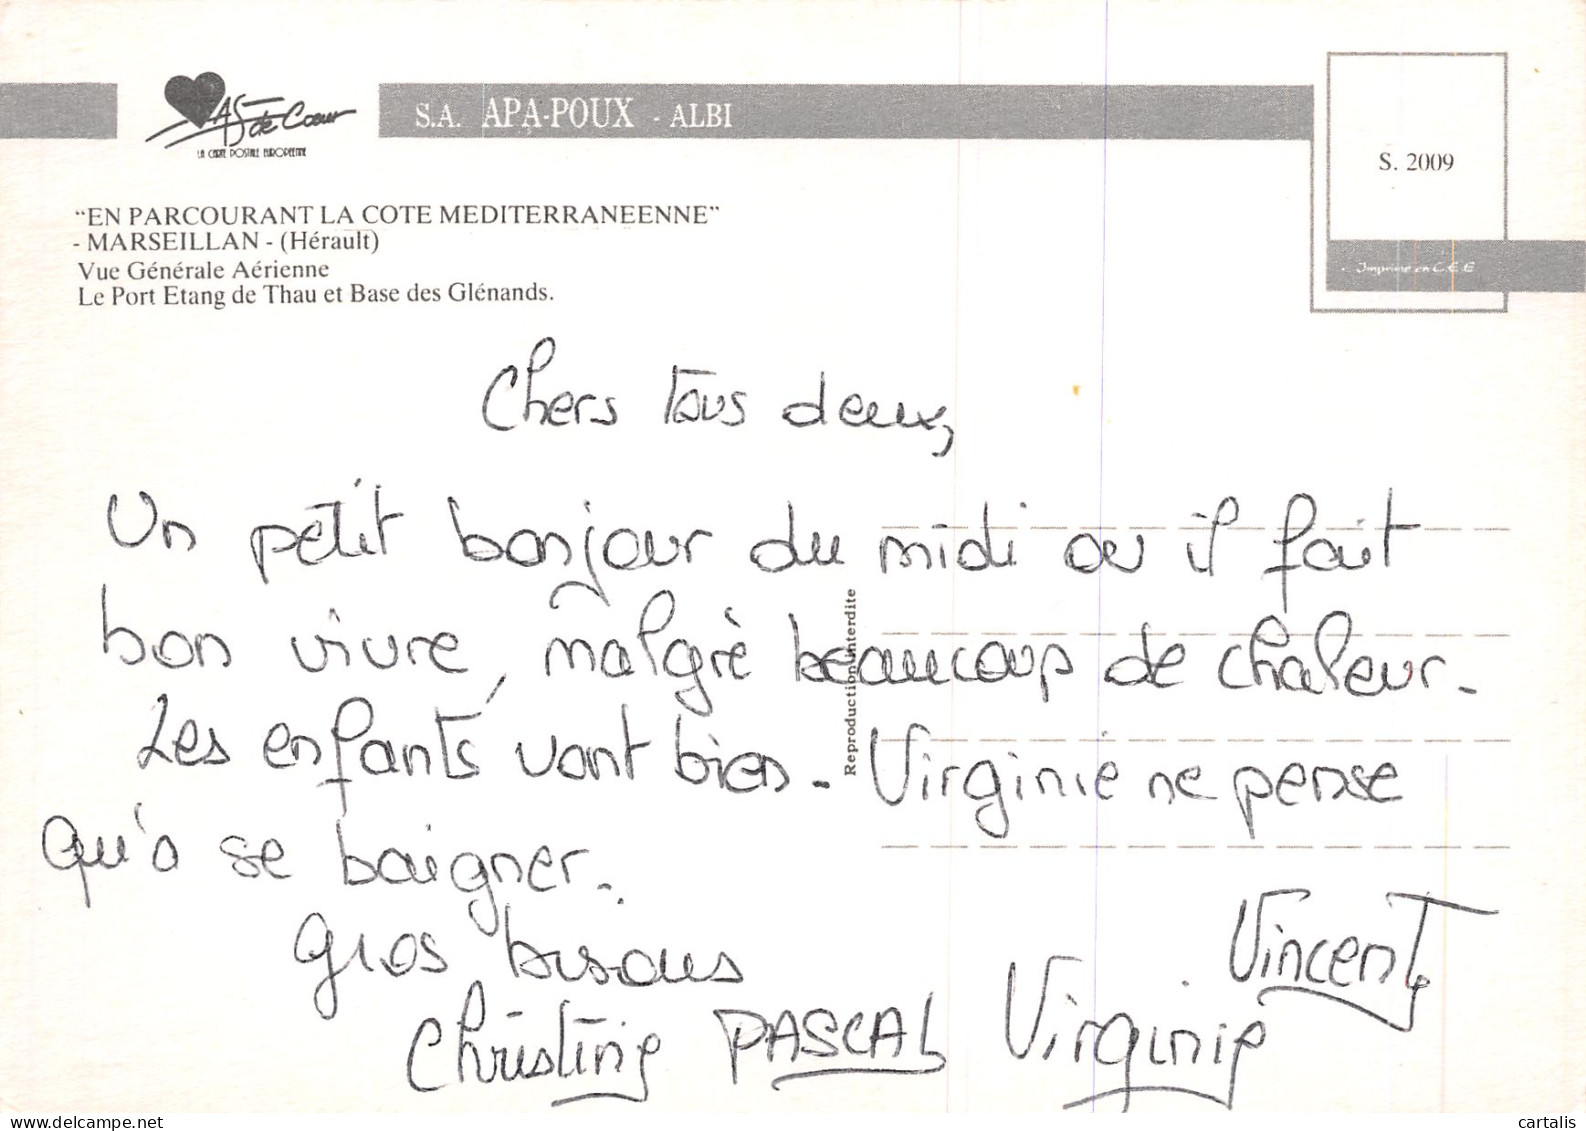 AS de Coeur
LA CARTE POSTALE EUROPEENNE
S.A. APA-POUX - ALBI
S. 2009
"EN PARCOURANT LA COTE MEDITERRANEENNE"
- MARSEILLAN - (Hérault)
Vue Générale Aérienne
Le Port Etang de Thau et Base des Glénands.
Imprimé en C.E.E
Chers tous deux,
Un petit bonjour du midi ou il fait
bon vivre, malgrè beaucoup de chaleur.
Les enfants vont bien. Virginie ne pense
qu'a se baigner.
Gros bisous
Vincent
Christine PASCAL Virginie
Reproduction interdite
delcampe.net
cartalis